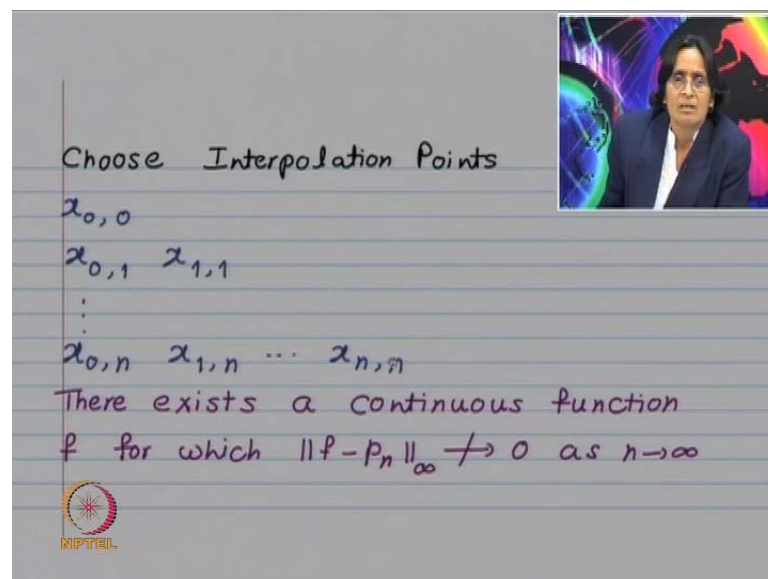 Choose Interpolation Points
x₀,₀
x₀,₁ x₁,₁
⋮
x₀,ₙ x₁,ₙ ⋯ xₙ,ₙ
There exists a continuous function
f for which ‖f - pₙ‖∞ ↛ 0 as n→∞
NPTEL